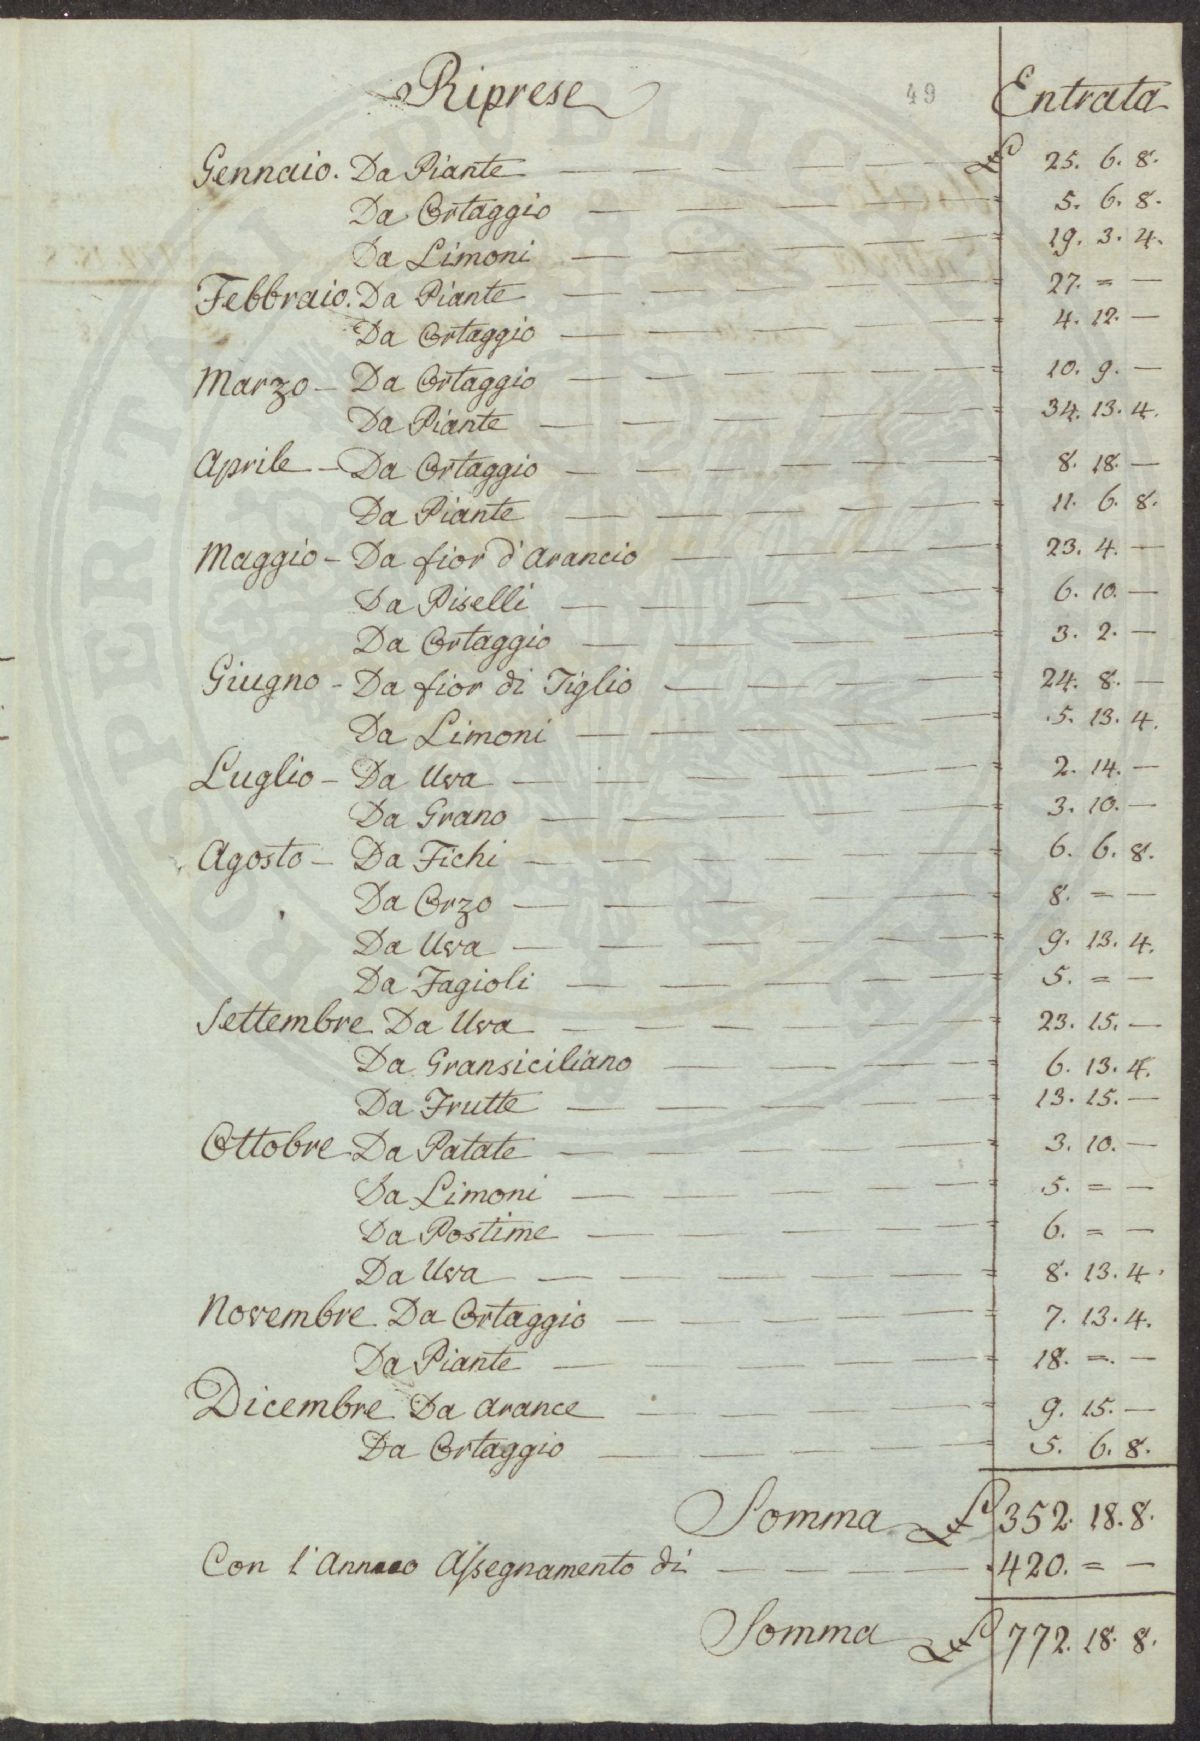 Riprese 49 Entrata
Gennaio. Da Piante £ 25. 6. 8.
Da Ortaggio 5. 6. 8.
Da Limoni 19. 3. 4.
Febbraio. Da Piante 27. = —
Da Ortaggio 4. 12. —
Marzo — Da Ortaggio 10. 9. —
Da Piante 34. 13. 4.
Aprile — Da Ortaggio 8. 18. —
Da Piante 11. 6. 8.
Maggio — Da fior d'Arancio 23. 4. —
Da Piselli 6. 10. —
Da Ortaggio 3. 2. —
Giugno — Da fior di Tiglio 24. 8. —
Da Limoni 5. 13. 4.
Luglio — Da Uva 2. 14. —
Da Grano 3. 10. —
Agosto — Da Fichi 6. 6. 8.
Da Orzo 8. = —
Da Uva 9. 13. 4.
Da Fagioli 5. = —
Settembre Da Uva 23. 15. —
Da Gransiciliano 6. 13. 4.
Da Frutte 13. 15. —
Ottobre Da Patate 3. 10. —
Da Limoni 5. = —
Da Postime 6. = —
Da Uva 8. 13. 4.
Novembre Da Ortaggio 7. 13. 4.
Da Piante 18. =. —
Dicembre Da Arance 9. 15. —
Da Ortaggio 5. 6. 8.
Somma £ 352. 18. 8.
Con l'Annuo Assegnamento di 420. = —
Somma £ 772. 18. 8.